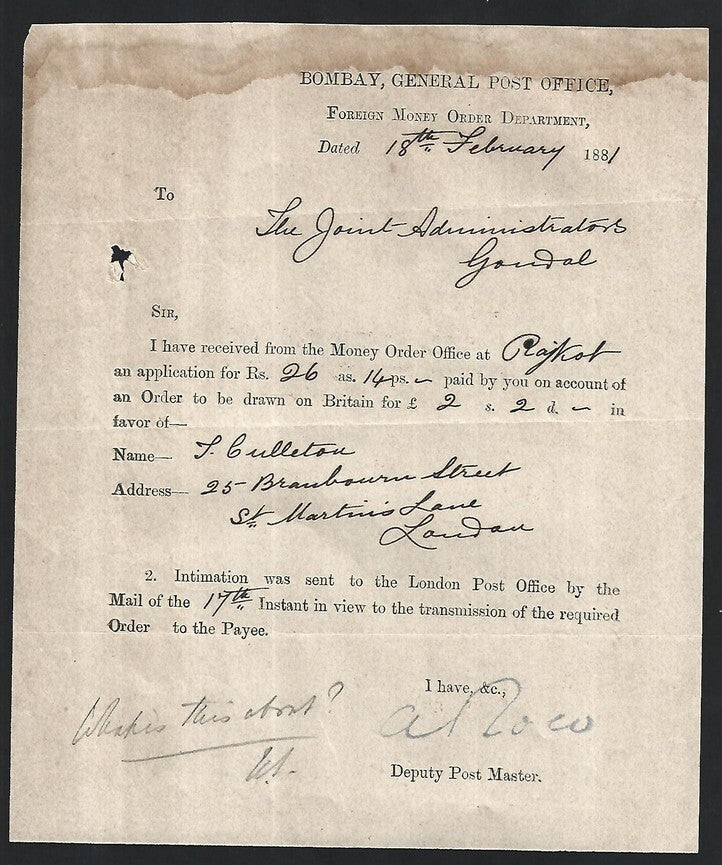 BOMBAY, GENERAL POST OFFICE,
FOREIGN MONEY ORDER DEPARTMENT,
Dated 18th February 1881
To
The Joint Administrators
Gondal
SIR,
I have received from the Money Order Office at Rajkot
an application for Rs. 26 as. 14 ps. ~ paid by you on account of
an Order to be drawn on Britain for £ 2 s. 2 d. ~ in
favor of—
Name— T. Culleton
Address— 25 Branbourn Street
St. Martin's Lane
London
2. Intimation was sent to the London Post Office by the
Mail of the 17th Instant in view to the transmission of the required
Order to the Payee.
I have, &c.,
What is this about?
Deputy Post Master.